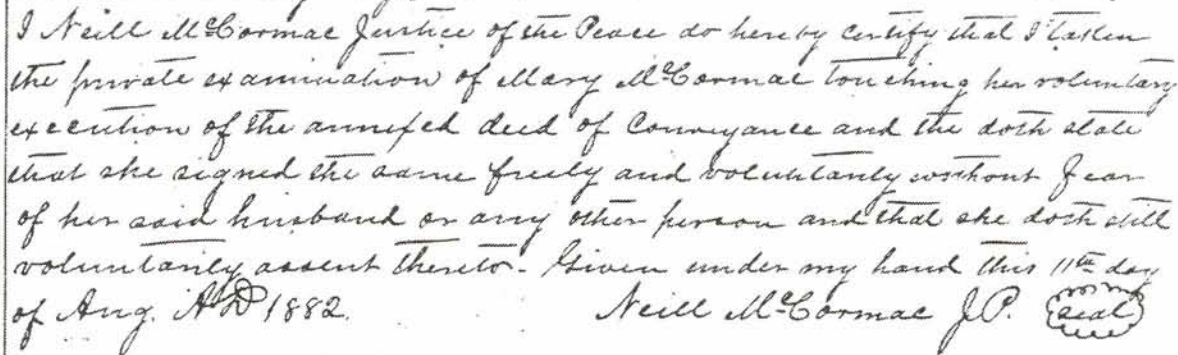 I Neill McCormac Justice of the Peace do hereby certify that I taken
the private examination of Mary McCormac touching her voluntary
execution of the annexed deed of Conveyance and the doth state
that she signed the same freely and voluntarily without Fear
of her said husband or any other person and that she doth still
voluntarily assent thereto. Given under my hand this 11th day
of Aug. AD 1882. Neill McCormac J.P. seal